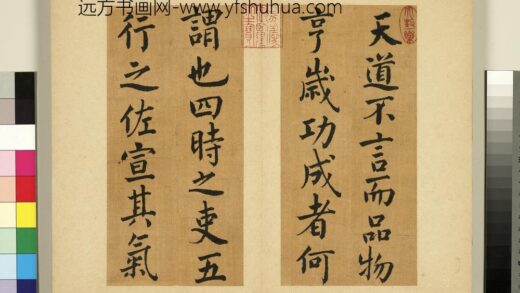 远方书画网-www.yfshuhua.com
天道不言而品物
亨歲功成者何
謂也四時之吏五
行之佐宣其氣